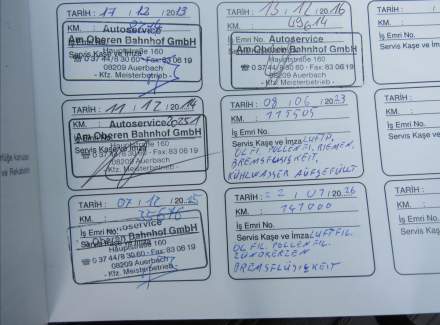 TARİH : 17 / 12 / 2013
KM. :
Autoservice
Am Oberen Bahnhof GmbH
İş Emri No.
Hauptstraße 160
Servis Kaşe ve İmza
☎ 0 37 44/8 30 60 · Fax: 83 06 19
08209 Auerbach
- Kfz. Meisterbetrieb -
TARİH : 11 / 12 / 2014
KM. :
Autoservice
Am Oberen Bahnhof GmbH
İş Emri No.
Hauptstraße 160
Servis Kaşe ve İmza
☎ 0 37 44/8 30 60 · Fax: 83 06 19
08209 Auerbach
- Kfz. Meisterbetrieb -
TARİH : 07 / 12 / 2015
KM. :
İş Emri No.
Autoservice
Am Oberen Bahnhof GmbH
Servis Kaşe ve İmza
Hauptstraße 160
☎ 0 37 44/8 30 60 · Fax: 83 06 19
08209 Auerbach
- Kfz. Meisterbetrieb -
TARİH : 13 / 12 / 2016
KM. : 49614
İş Emri No.
Autoservice
Am Oberen Bahnhof GmbH
Servis Kaşe ve İmza
Hauptstraße 160
☎ 0 37 44/8 30 60 · Fax: 83 06 19
08209 Auerbach
- Kfz. Meisterbetrieb -
TARİH : 08 / 06 / 2023
KM. :
İş Emri No.
Servis Kaşe ve İmza LUFTFI.
ÖLFI. POLLENFI. RIEMEN,
BREMSFLÜSIGKEIT,
KÜHLWASSER AUFGEFÜLLT
TARİH : 22 / 01 / 2026
KM. : 141000
İş Emri No.
Servis Kaşe ve İmza LUFTFIL.
ÖL FIL. POLLENFIL.
ZÜNDKERZEN
BREMSFLÜSIGKEIT
TARİH :
KM. :
İş Emri No.
Servis Kaşe
TARİH :
KM.
İş Emri No.
Servis Kaşe
TARİH
KM.
İş Emri
Servis